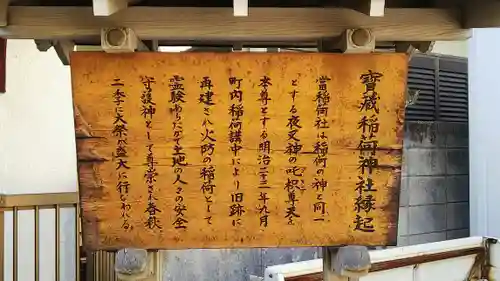 寶蔵稲荷神社縁起
當稲荷社は稲荷の神と同一
とする夜叉神の吒枳尊天を
本尊とする明治二十三年九月
町内稲荷講中により旧跡に
再建され火防の稲荷として
霊験あらたかで当地の人々の安全
守護神として尊崇され春秋
二季に大祭が盛大に行なわれる